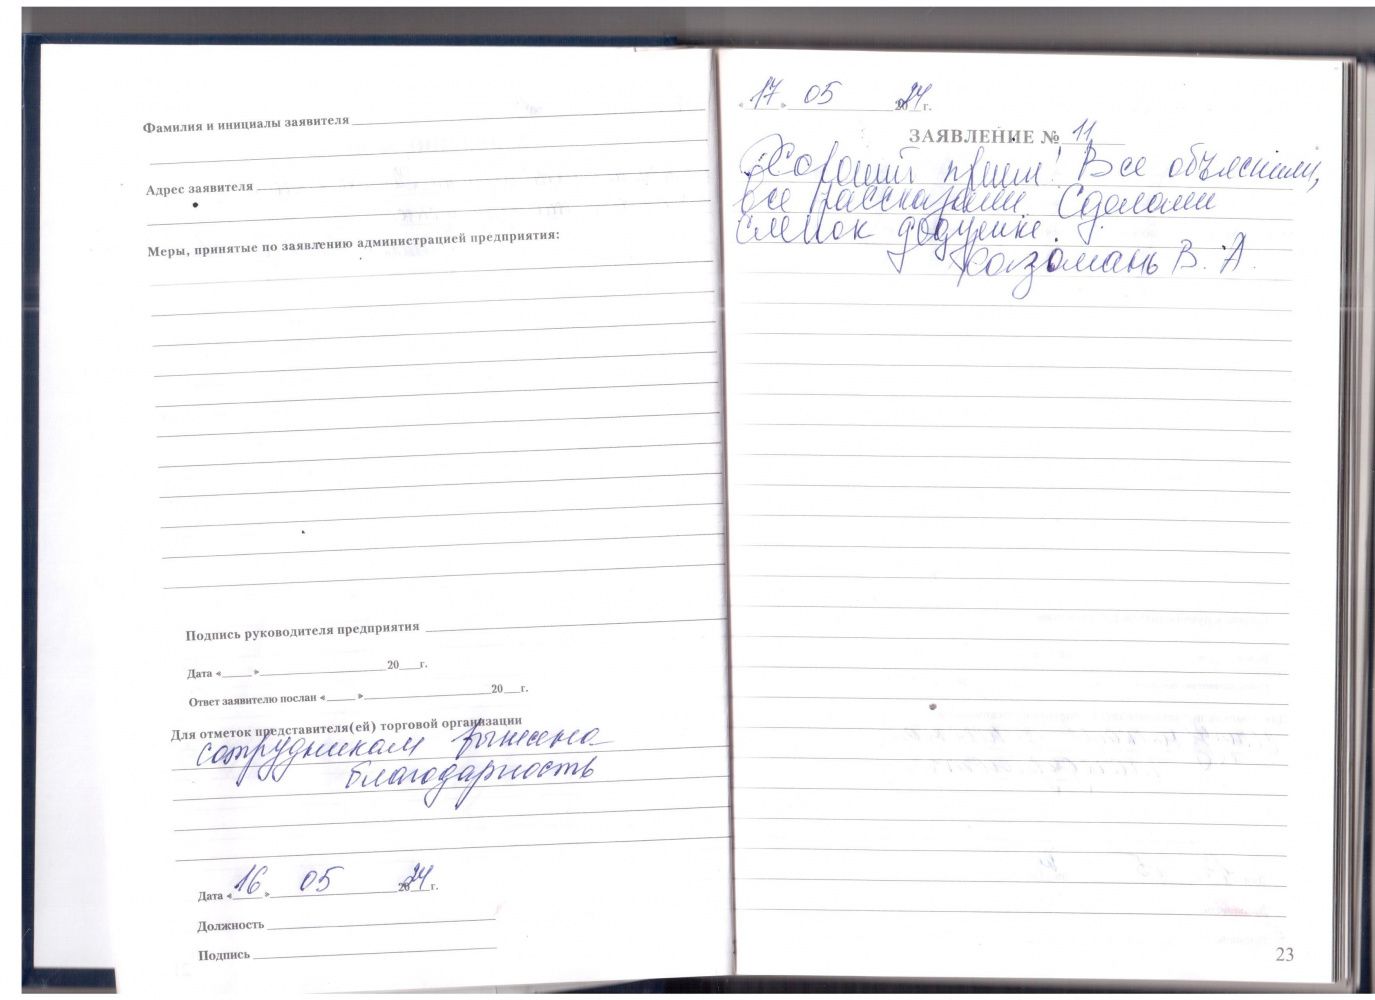 Фамилия и инициалы заявителя
Адрес заявителя
Меры, принятые по заявлению администрацией предприятия:
Подпись руководителя предприятия
Дата « » 20 г.
Ответ заявителю послан « » 20 г.
Для отметок представителя(ей) торговой организации
сотрудникам вынесена
благодарность
Дата «16» 05 2024 г.
Должность
Подпись
«17» 05 2024 г.
ЗАЯВЛЕНИЕ № 11
Хороший прием! Все объяснили,
все рассказали. Сделали
слепок дедушке.
В. А.
23